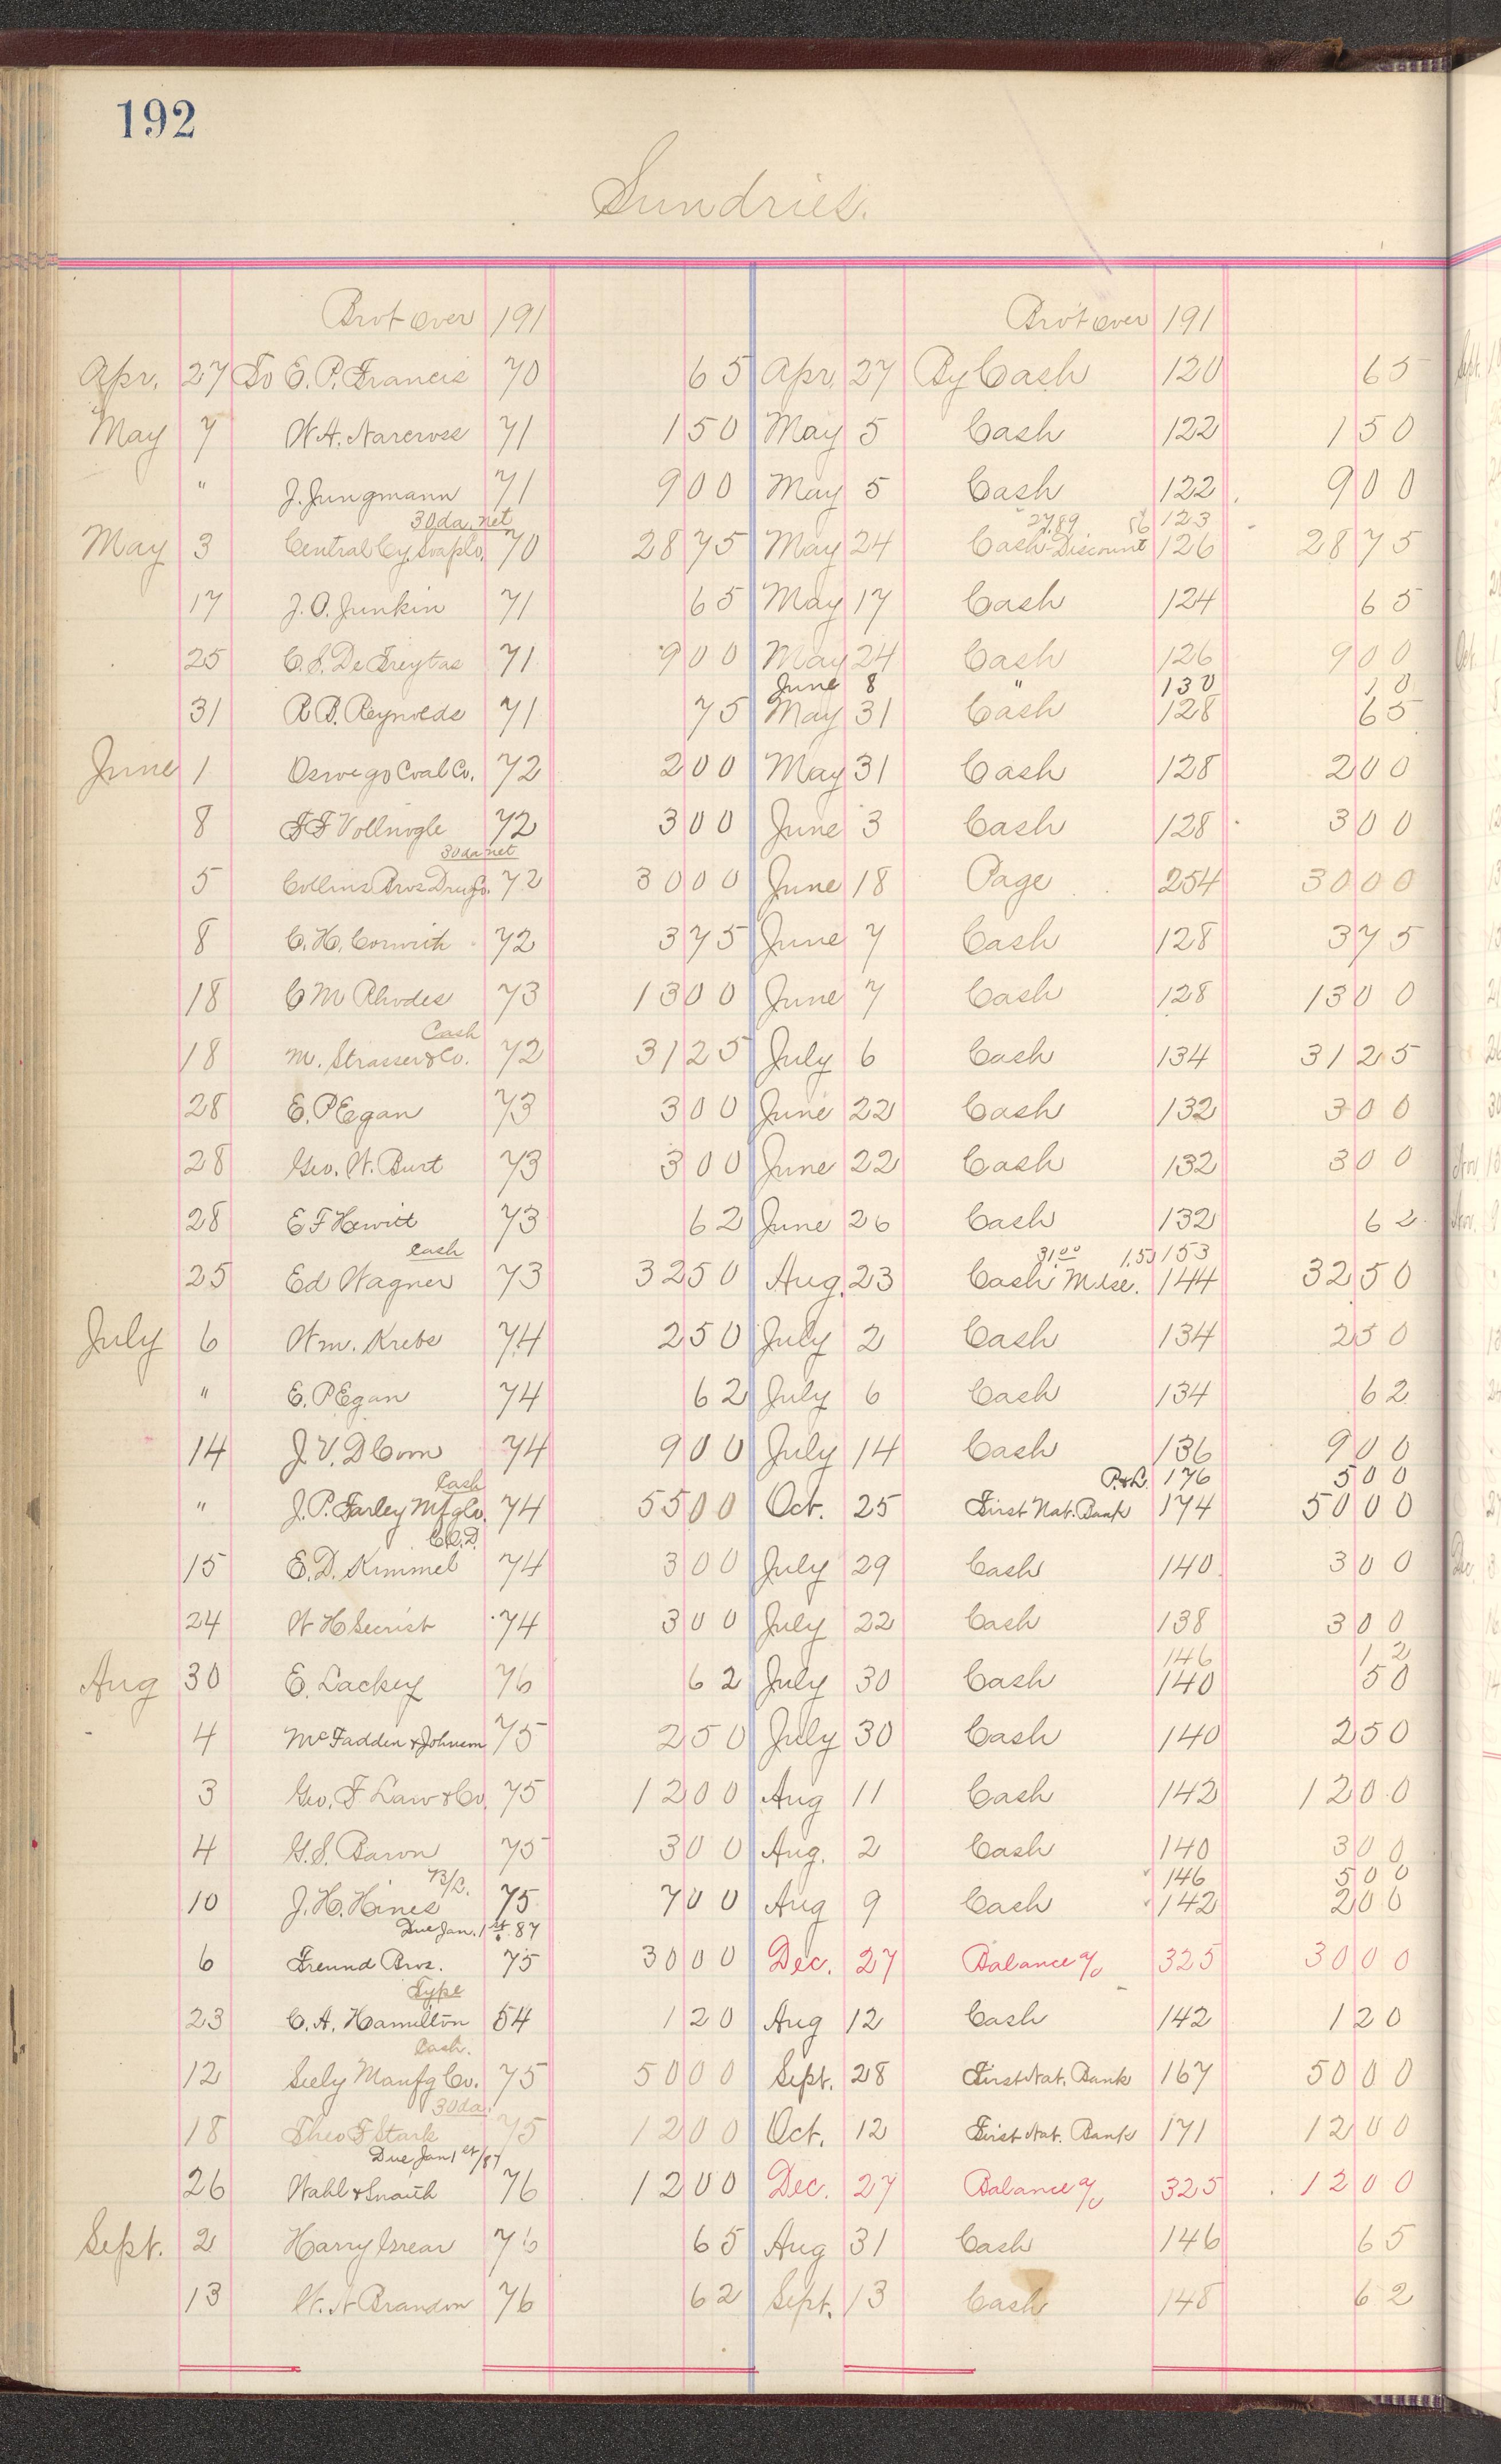 192
Sundries.
Brot over 191 Bro't over 191
Apr. 27 To E. P. Francis 70 65 Apr. 27 By Cash 120 65
May 7 W. A. Narcross 71 1 50 May 5 Cash 122 1 50
" J. Jungmann 71 9 00 May 5 Cash 122 9 00
30 da. net 27.89 86 123
May 3 Central Cy. Soap Co. 70 28 75 May 24 Cash Discount 126 28 75
17 J. O. Junkin 71 65 May 17 Cash 124 65
25 C. S. De Freytas 71 9 00 May 24 Cash 126 9 00
June 8 " 130 10
31 R. B. Reynolds 71 75 May 31 Cash 128 65
June 1 Oswego Coal Co. 72 2 00 May 31 Cash 128 2 00
8 F F Vollnogle 72 3 00 June 3 Cash 128 3 00
30 da net
5 Collins Bros Drug Co. 72 30 00 June 18 Page 254 30 00
8 C. H. Corwith 72 3 75 June 7 Cash 128 3 75
18 C M Rhodes 73 13 00 June 7 Cash 128 13 00
Cash
18 M. Strasser & Co. 72 31 25 July 6 Cash 134 31 25
28 E. P Egan 73 3 00 June 22 Cash 132 3 00
28 Geo. W. Burt 73 3 00 June 22 Cash 132 3 00
28 E F Hewitt 73 62 June 26 Cash 132 62
Cash 31.00 1.50 153
25 Ed Wagner 73 32 50 Aug. 23 Cash Mdse. 144 32 50
July 6 Wm. Krebs 74 2 50 July 2 Cash 134 2 50
" E. P Egan 74 62 July 6 Cash 134 62
14 J. V. D Corn 74 9 00 July 14 Cash 136 9 00
Cash P. & L. 176 5 00
" J. P. Farley Mfg Co. 74 55 00 Oct. 25 First Nat. Bank 174 50 00
C.O.D.
15 E. D. Kimmel 74 3 00 July 29 Cash 140 3 00
24 W H Secrist 74 3 00 July 22 Cash 138 3 00
146 12
Aug 30 E. Lackey 76 62 July 30 Cash 140 50
4 McFadden & Johnson 75 2 50 July 30 Cash 140 2 50
3 Geo. F Law & Co. 75 12 00 Aug 11 Cash 142 12 00
4 G. S. Baron 75 3 00 Aug. 2 Cash 140 3 00
B/L. 146 5 00
10 J. H. Hines 75 7 00 Aug 9 Cash 142 2 00
Due Jan. 1st 87
6 Freund Bros. 75 30 00 Dec. 27 Balance a/c 325 30 00
Type
23 C. A. Hamilton 54 1 20 Aug 12 Cash 142 1 20
Cash.
12 Seely Manfg Co. 75 50 00 Sept. 28 First Nat. Bank 167 50 00
30 da.
18 Theo F Stark 75 12 00 Oct. 12 First Nat. Bank 171 12 00
Due Jan 1st/87
26 Wahl & Snaith 76 12 00 Dec. 27 Balance a/c 325 12 00
Sept. 2 Harry Crear 76 65 Aug 31 Cash 146 65
13 W. A Brandon 76 62 Sept. 13 Cash 148 62